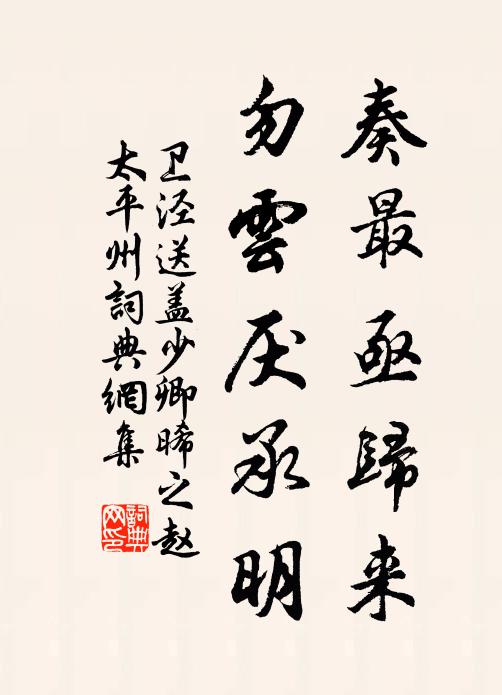 奏最亟歸来
勿雲厌承明
卫泾送盖少卿晞之赵
太平州詞典網集
詞典网印